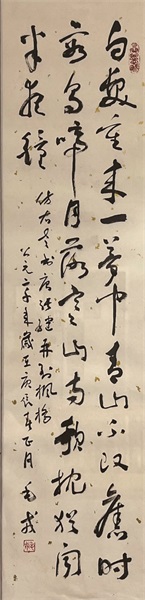 白发重来一梦中青山不改旧时
容乌啼月落寒山寺欹枕犹闻
半夜钟
仿古台书唐张继再到枫桥
公元二千年岁在庚辰年正月